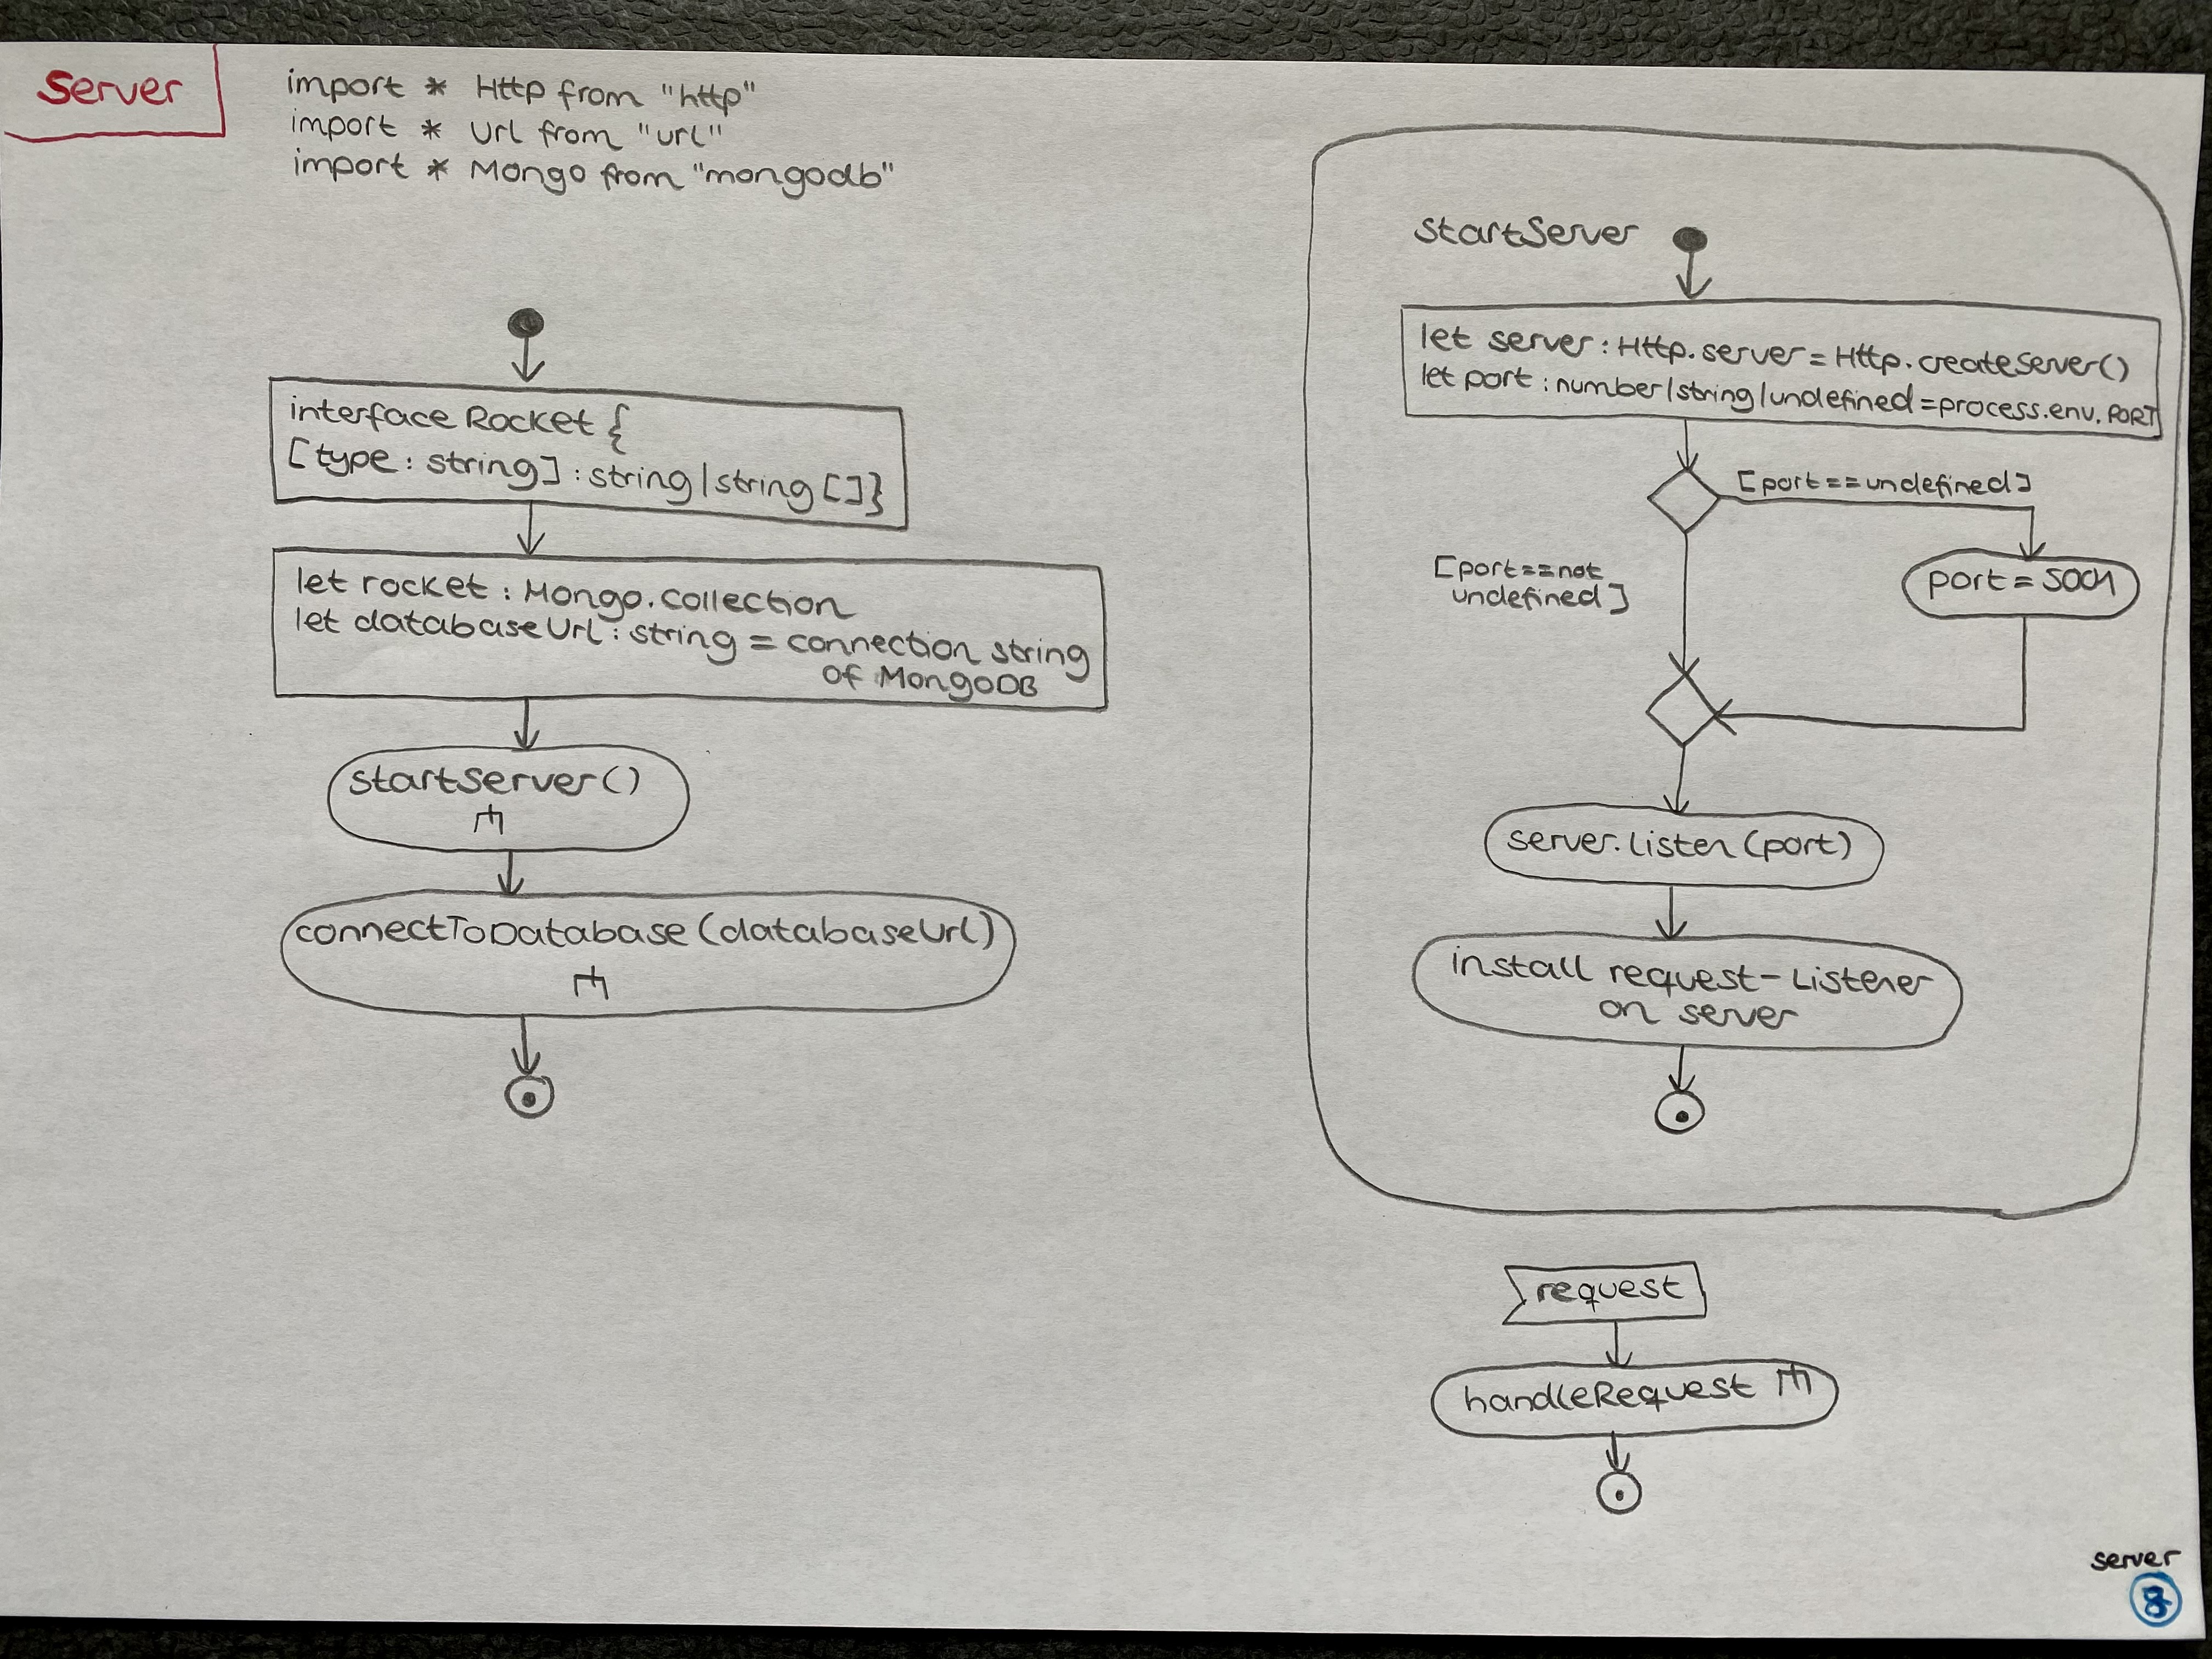 Server
import * Http from "http"
import * Url from "url"
import * Mongo from "mongodb"
interface Rocket {
[type: string]: string|string[]}
let rocket: Mongo.Collection
let databaseUrl: string = connection string
of MongoDB
startServer()
connectToDatabase(databaseUrl)
startServer
let server: Http.server = Http.createServer()
let port: number|string|undefined = process.env.PORT
[port == undefined]
[port == not
undefined]
port = 5001
server.listen(port)
install request-Listener
on server
request
handleRequest
server
8